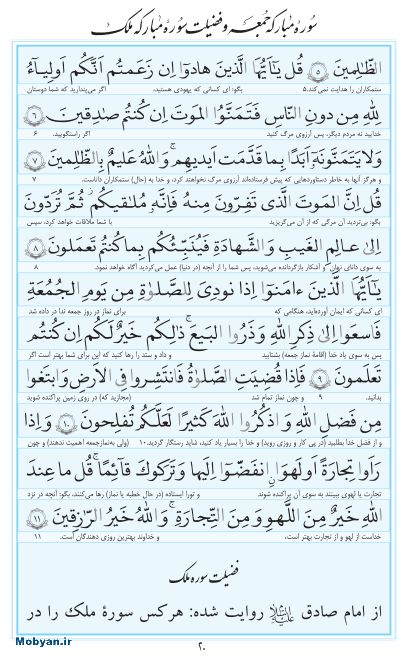 سورهٔ مبارکه جمعه و فضیلت سورهٔ مبارکه ملک
الظّٰلِمينَ ﴿٥﴾ قُل يٰأَيُّهَا الَّذينَ هادوا إِن زَعَمتُم أَنَّكُم أَولِياءُ
ستمکاران را هدایت نمی‌کند. ۵ بگو: ای کسانی که یهودی هستید، اگر می‌پندارید که شما دوستان
لِلّٰهِ مِن دونِ النّاسِ فَتَمَنَّوُا المَوتَ إِن كُنتُم صٰدِقينَ ﴿٦﴾
خدایید نه مردم دیگر، پس آرزوی مرگ کنید اگر راستگویید. ۶
وَلا يَتَمَنَّونَهُ أَبَدًا بِما قَدَّمَت أَيديهِم ۚ وَاللّٰهُ عَليمٌ بِالظّٰلِمينَ ﴿٧﴾
و هرگز آنها به خاطر دستاوردهایی که پیش فرستاده‌اند آرزوی مرگ نخواهند کرد، و خدا به (حال) ستمکاران داناست. ۷
قُل إِنَّ المَوتَ الَّذي تَفِرّونَ مِنهُ فَإِنَّهُ مُلٰقيكُم ۖ ثُمَّ تُرَدّونَ
بگو: بی‌تردید آن مرگی که از آن می‌گریزید با شما ملاقات خواهد کرد، سپس
إِلىٰ عالِمِ الغَيبِ وَالشَّهٰدَةِ فَيُنَبِّئُكُم بِما كُنتُم تَعمَلونَ ﴿٨﴾
به سوی دانای نهان و آشکار بازگردانده می‌شوید، پس شما را از آنچه (در دنیا) عمل می‌کردید آگاه خواهد نمود. ۸
يٰأَيُّهَا الَّذينَ ءامَنوا إِذا نودِيَ لِلصَّلوٰةِ مِن يَومِ الجُمُعَةِ
ای کسانی که ایمان آورده‌اید، هنگامی که برای نماز در روز جمعه ندا در داده شد
فَاسعَوا إِلىٰ ذِكرِ اللّٰهِ وَذَرُوا البَيعَ ۚ ذٰلِكُم خَيرٌ لَكُم إِن كُنتُم
پس به سوی یاد خدا (اقامهٔ نماز جمعه) بشتابید و داد و ستد را رها کنید که این برای شما بهتر است اگر
تَعلَمونَ ﴿٩﴾ فَإِذا قُضِيَتِ الصَّلوٰةُ فَانتَشِروا فِي الأَرضِ وَابتَغوا
بدانید. ۹ و چون نماز تمام شد (مجازید که) در روی زمین پراکنده شوید
مِن فَضلِ اللّٰهِ وَاذكُرُوا اللّٰهَ كَثيرًا لَعَلَّكُم تُفلِحونَ ﴿١٠﴾ وَإِذا
و از فضل خدا بطلبید (در پی کار و روزی روید) و خدا را بسیار یاد کنید، شاید رستگار گردید. ۱۰ (ولی به‌نمازجمعه اهمیت ندهند) و چون
رَأَوا تِجٰرَةً أَو لَهوًا انفَضّوا إِلَيها وَتَرَكوكَ قائِمًا ۚ قُل ما عِندَ
تجارت یا لهوی ببینند به سوی آن پراکنده شوند و تو را ایستاده (در حال خطبه یا نماز) رها می‌کنند، بگو: آنچه در نزد
اللّٰهِ خَيرٌ مِنَ اللَّهوِ وَمِنَ التِّجٰرَةِ ۚ وَاللّٰهُ خَيرُ الرّٰزِقينَ ﴿١١﴾
خداست از لهو و از تجارت بهتر است، و خداوند بهترین روزی دهندگان است. ۱۱
فضیلت سوره ملک
از امام صادق علیه السلام روایت شده: هرکس سورهٔ ملک را در
۲۰
Mobyan.ir